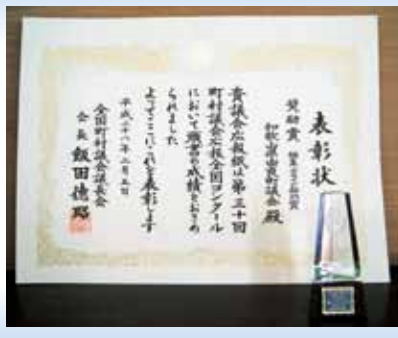 表彰状
奨励賞
和歌山県由良町議会殿
貴議会広報紙は第三十回
町村議会広報全国コンクール
において優秀の成績をおさめ
られました
よってここにこれを表彰します
平成二十八年二月五日
全国町村議会議長会
会長 飯田徳昭